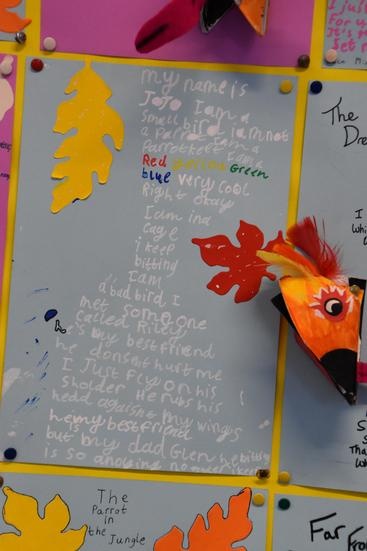 my name is
JoJo I am a
Small bird iam not
a Parrot I am a
Parrotkeet I am a
Red yellow Green
blue very cool
Right okay
I am in a
Cage
i keep
bitting
I am
a bad bird I
met someone
called Riley
he is my best friend
he donsent hurt me
I Just fly on his
Sholder He rubs his
head agaisht my wings
he my best friend
is
but my dad Glen he bitting
is so anoying no
The
Dre
I
Whi
The
Parrot
in
the Jungle
Far Fro
I jus
For y
It's
Set
S
Tha